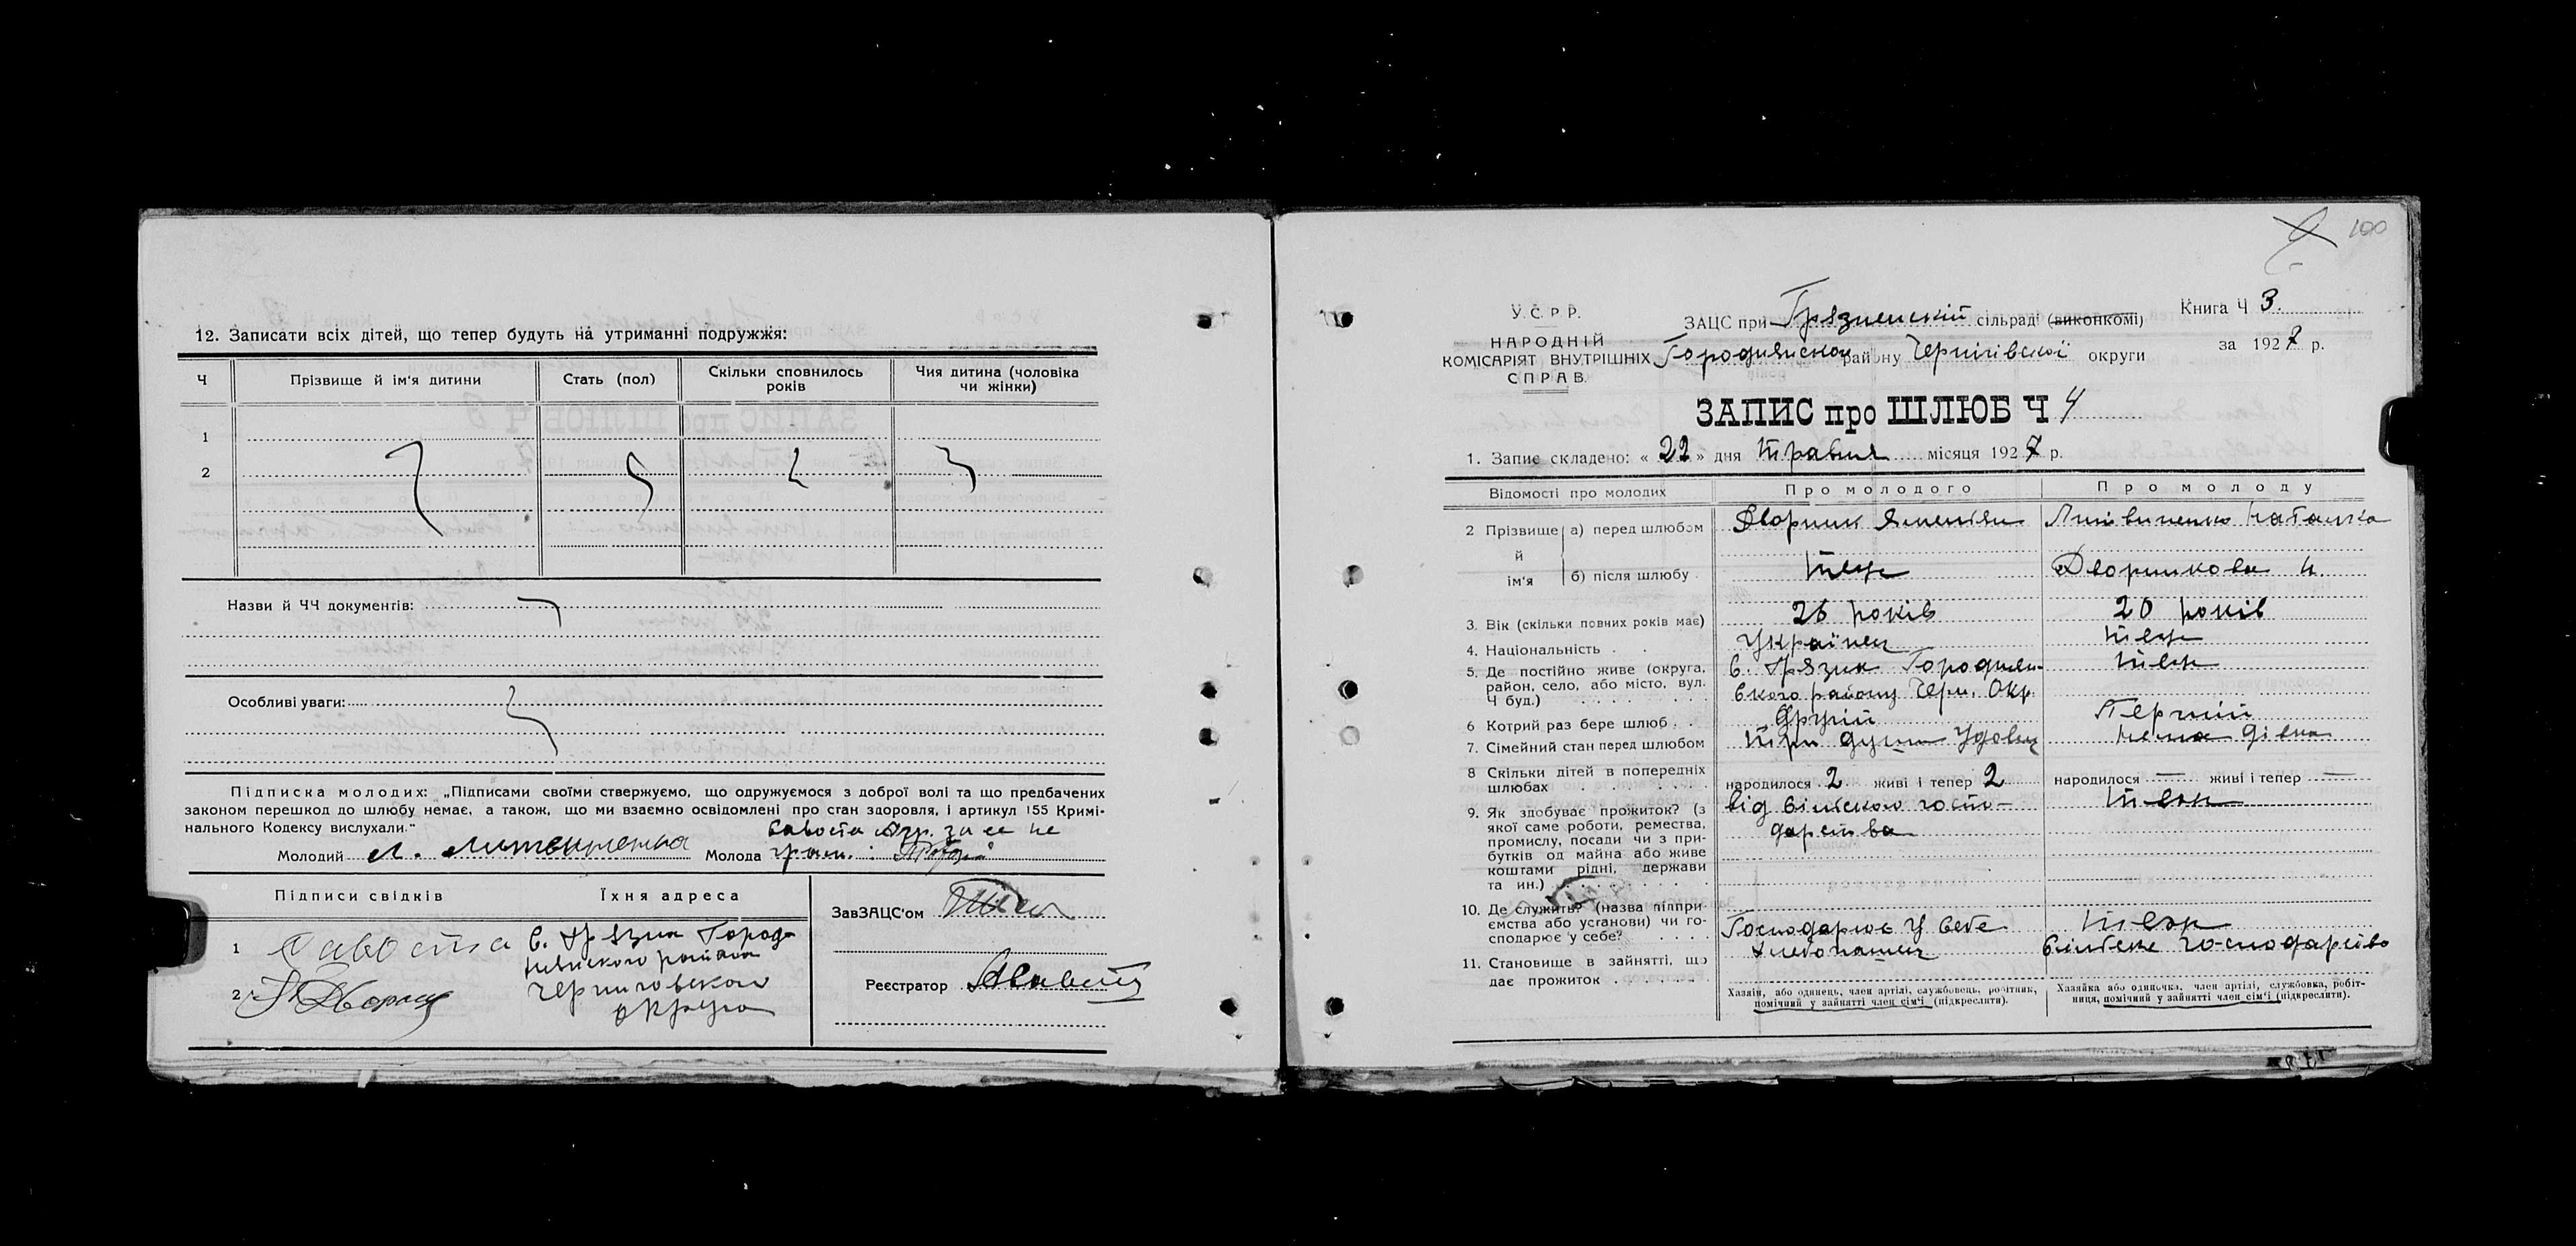 12. Записати всіх дітей, що тепер будуть на утриманні подружжя:
Ч Прізвище й ім'я дитини Стать (пол) Скільки сповнилось років Чия дитина (чоловіка чи жінки)
1
2
Назви й ЧЧ документів:
Особливі уваги:
Підписка молодих: „Підписами своїми ствержуємо, що одружуємося з доброї волі та що предбачених
законом перешкод до шлюбу немає, а також, що ми взаємно освідомлені про стан здоровля, і артикул 155 Кримі-
нального Кодексу вислухали."
Молодий Молода
Підписи свідків Їхня адреса
ЗавЗАЦС'ом
1 Савоста с. Грязна Городн-
янского района
2 Дворник Черниговского
округа
Реєстратор
100
У.С.Р.Р.
НАРОДНІЙ
КОМІСАРІЯТ ВНУТРІШНІХ
СПРАВ.
ЗАЦС при Грязненскій сільраді (виконкомі)
Городянской району Чернігівскої округи
Книга Ч 3.
за 1927 р.
ЗАПИС про ШЛЮБ Ч 4
1. Запис складено: « 22 » дня Травня місяця 1927 р.
Відомості про молодих Про молодого Про молоду
2 Прізвище й ім'я а) перед шлюбом Дворник Литвиненко Наталка
б) після шлюбу теж Дворникова Н.
3. Вік (скільки повних років має) 26 років 20 років
4. Національність Українец теж
5. Де постійно живе (округа, район, село, або місто, вул. Ч буд.) с. Грязна Городнян-
ского району Черн. Окр. теж
6 Котрий раз бере шлюб Другій Першій
7. Сімейний стан перед шлюбом три душі Удовец дівка
8 Скільки дітей в попередніх шлюбах народилося 2 живі і тепер 2 народилося — живі і тепер —
9. Як здобуває прожиток? (з якої саме роботи, ремества, промислу, посади чи з при-
бутків од майна або живе коштами рідні, держави та ин.) від сільского госпо-
дарства теж
10. Де служить? (назва підпри-
ємства або установи) чи го-
сподарює у себе? Господарює у себе теж
11. Становище в зайнятті, що дає прожиток хлебопашец сільське господарство
Хазяїн, або одинець, член артілі, службовець, робітник,
помічний у зайнятті член сім'ї (підкреслити).
Хазяйка або одиночка, член артілі, службовка, робіт-
ниця, помічний у зайнятті член сім'ї (підкреслити).